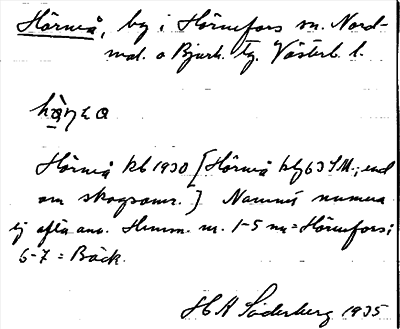 Hörneå, by i Hörnefors sn. Nord-
mal. o Bjurh. tg. Västerb. l.
Hörneå kb 1930 [Hörneå kb 63 JM.; end
om skogsomr.] Namnet numera
ej ofta anv. Hemm. nr. 1-5 nu = Hörnefors;
6-7 = Bäck.
H A Söderberg 1935